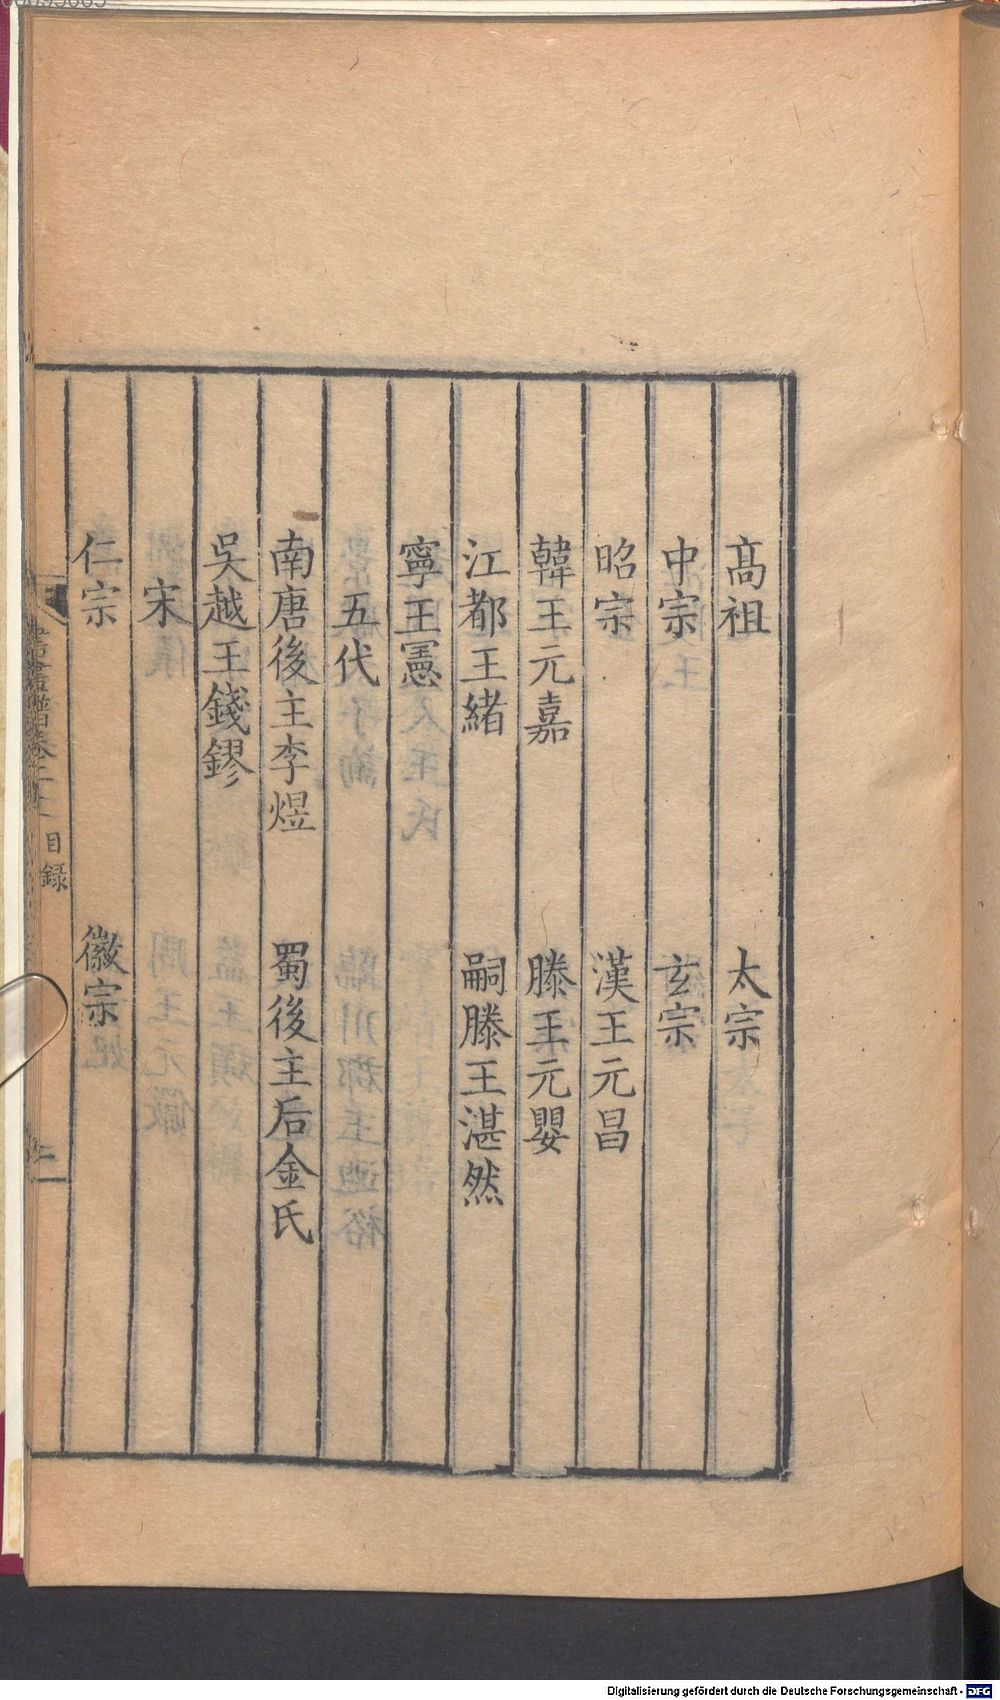 高祖　太宗
中宗　玄宗
昭宗　漢王元昌
韓王元嘉　滕王元嬰
江都王緒　嗣滕王湛然
寧王憲
五代
南唐後主李煜　蜀後主后金氏
吳越王錢鏐
宋
仁宗　徽宗
目錄
Digitalisierung gefördert durch die Deutsche Forschungsgemeinschaft - DFG